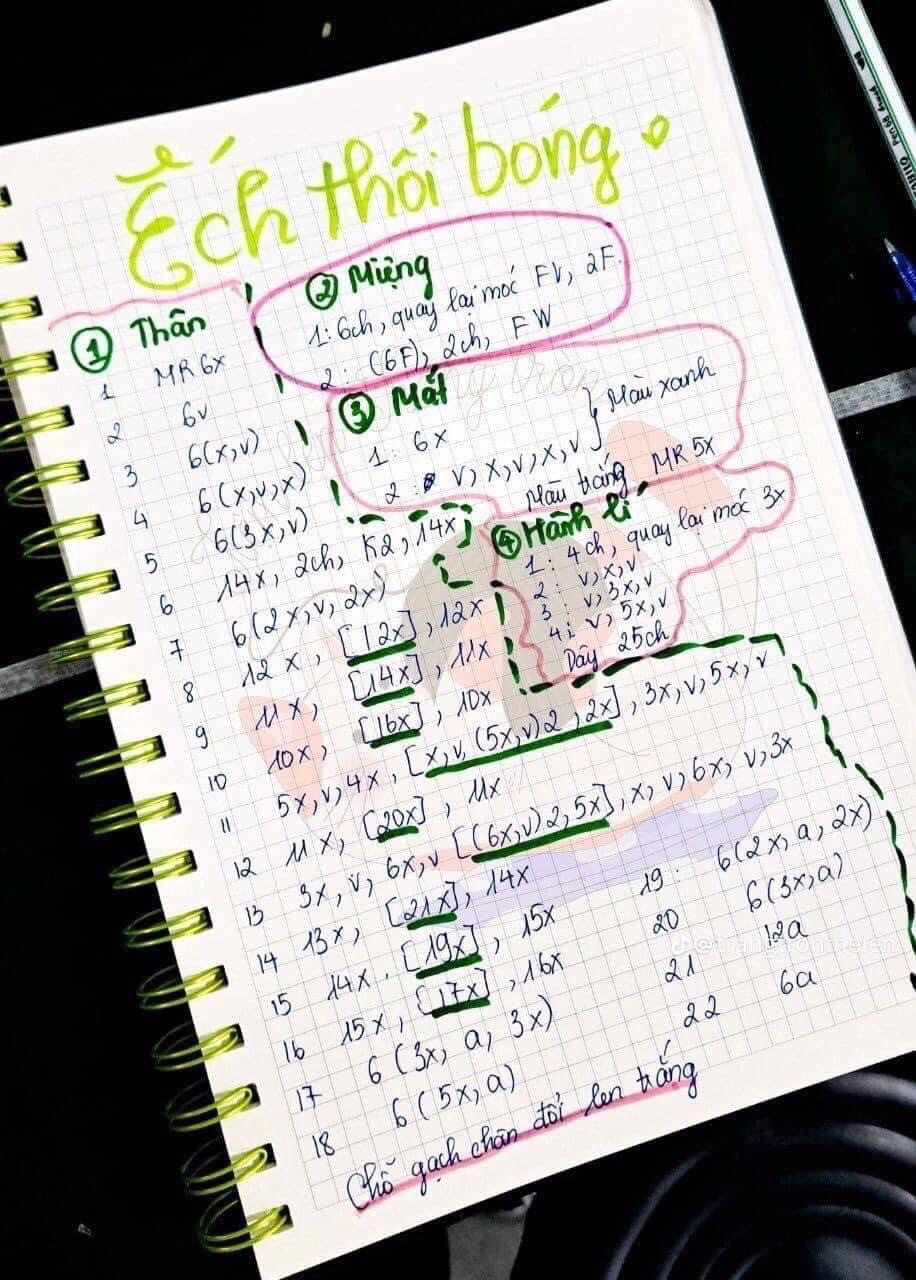 Ếch thổi bóng
① Thân
1 MR 6x
2 6v
3 6(x,v)
4 6(x,v,x)
5 6(3x,v)
6 14x, 2ch, K2, 14x
7 6(2x,v,2x)
8 12x, [12x], 12x
9 11x, [14x], 11x
10 10x, [16x], 10x
11 5x,v,4x, [x,v,(5x,v)2,2x], 3x,v,5x,v
12 11x, [20x], 11x
13 3x,v,6x,v [(6x,v)2,5x], x,v,6x,v,3x
14 13x, [21x], 14x
15 14x, [19x], 15x
16 15x, [17x], 16x
17 6(3x, a, 3x)
18 6(5x,a)
19: 6(2x, a, 2x)
20 6(3x,a)
21 12a
22 6a
Chỗ gạch chân đổi len trắng
② Miệng
1: 6ch, quay lại móc FV, 2F.
2: (6F), 2ch, FW
③ Mắt
1: 6x
2: v,x,v,x,v
Màu xanh
Màu trắng MR 5x
④ Hành lí
1: 4ch, quay lại móc 3x
2: v,x,v
3: v,3x,v
4: v,5x,v
Dây 25ch